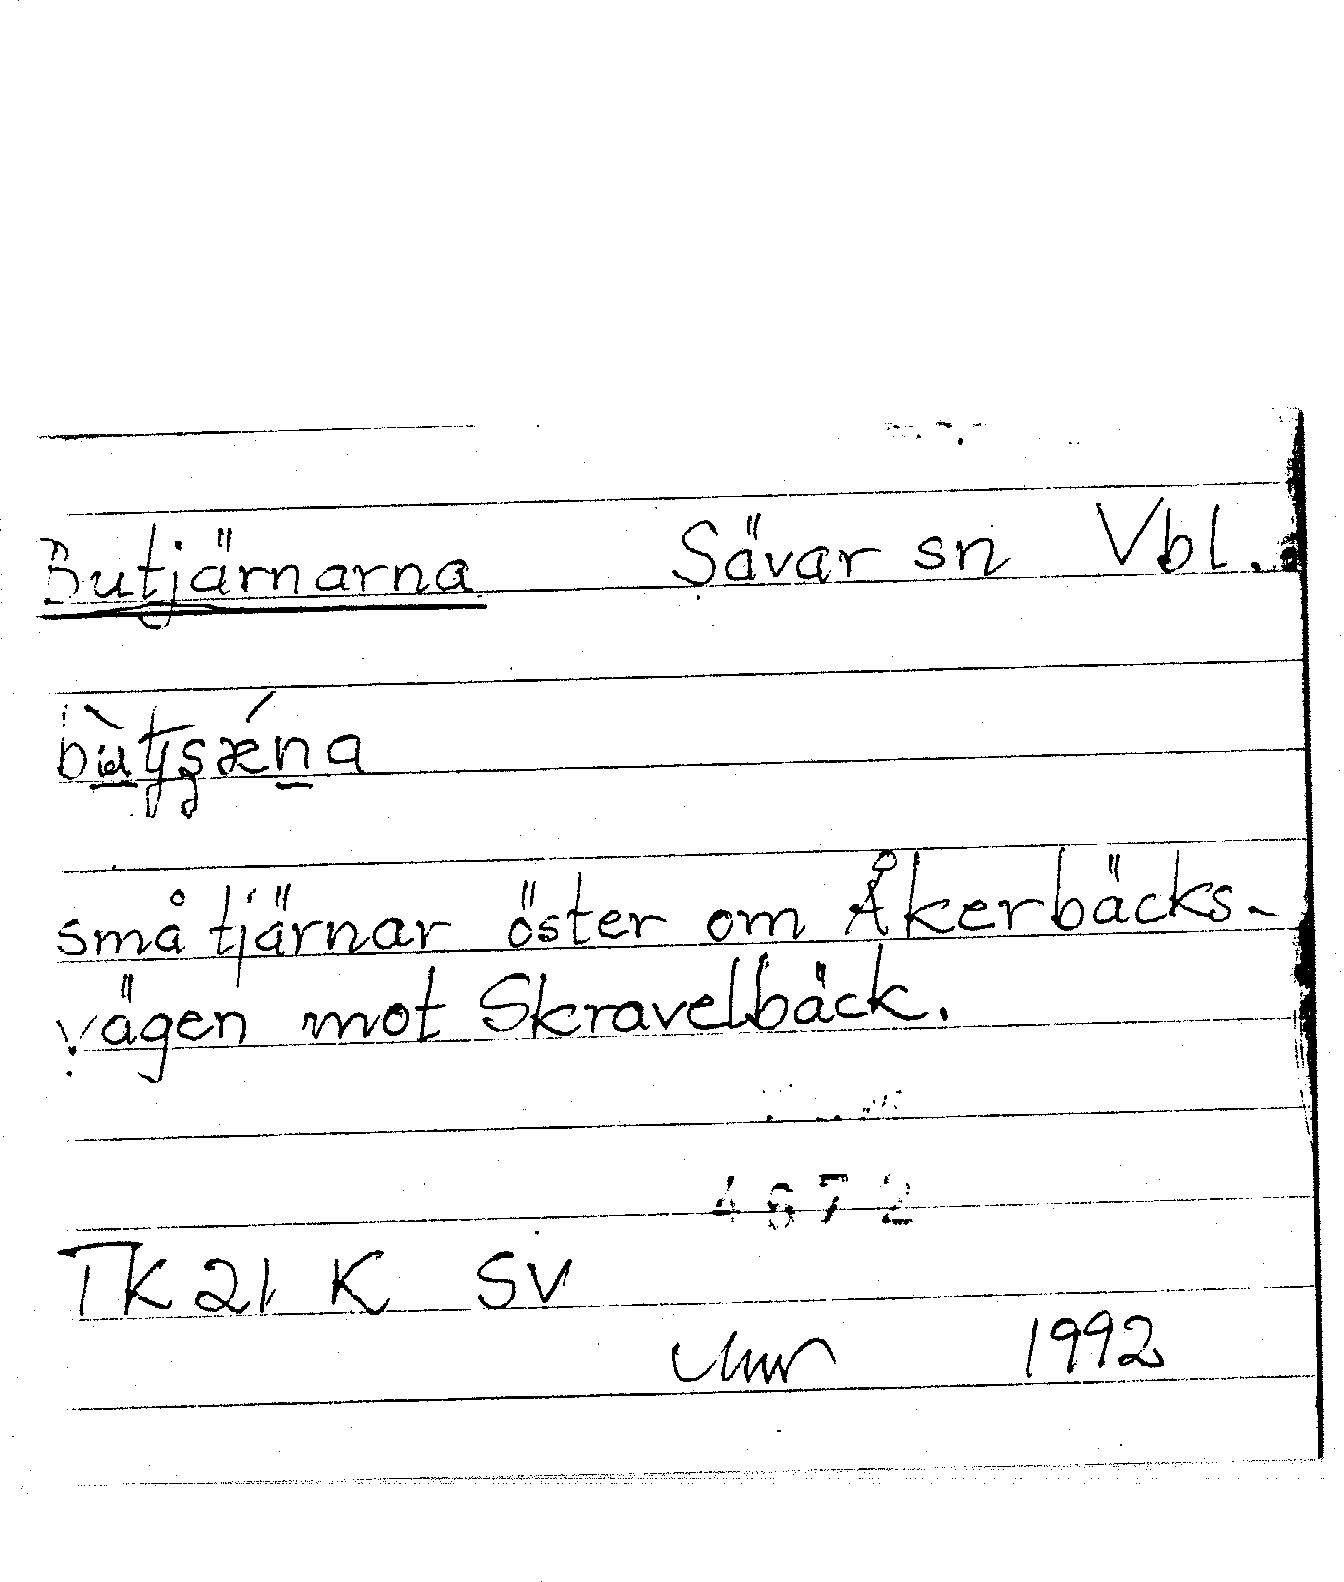 Butjärnarna Sävar sn Vbl.
småtjärnar öster om Åkerbäcks-
vägen mot Skravelbäck.
4672
TK 21 K SV
1992